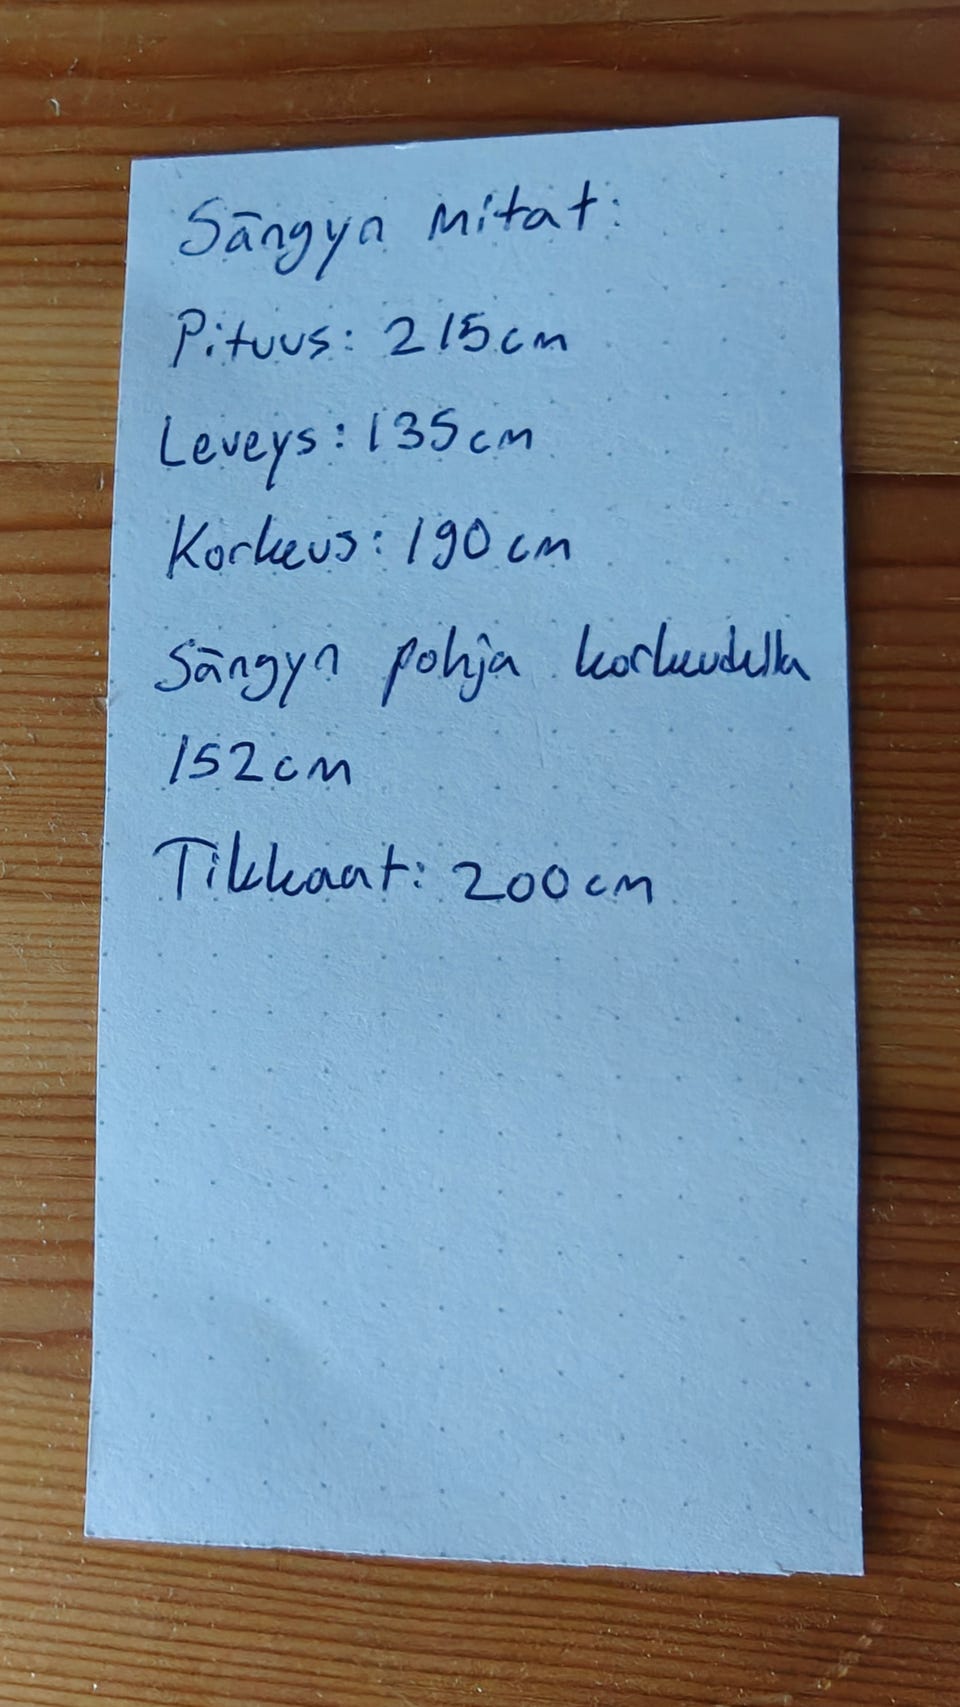 Sängyn mitat:
Pituus: 215cm
Leveys: 135cm
Korkeus: 190cm
Sängyn pohja korkeudella
152cm
Tikkaat: 200cm